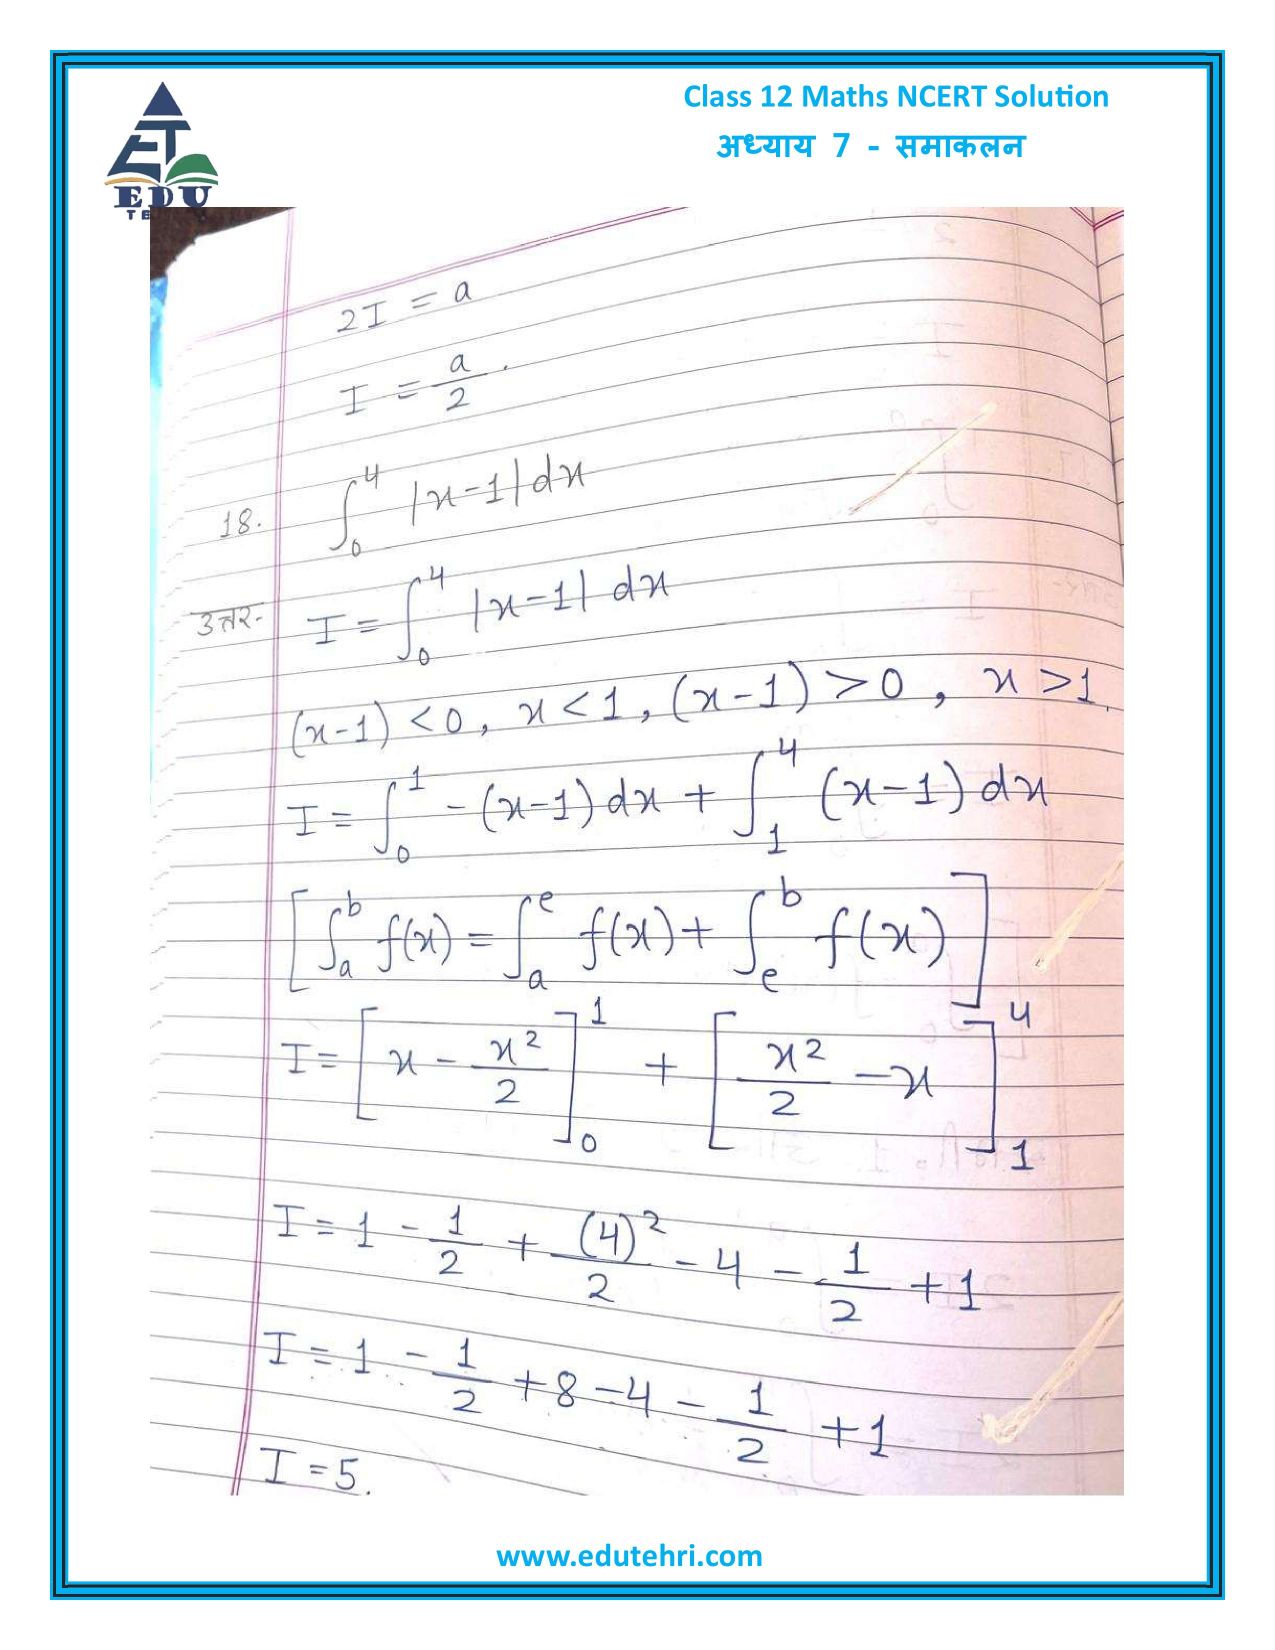 Class 12 Maths NCERT Solution
अध्याय 7 - समाकलन
EDU
2I = a
I = a/2.
18. ∫₀⁴ |x-1| dx
उत्तर- I = ∫₀⁴ |x-1| dx
(x-1) < 0, x < 1, (x-1) > 0, x > 1.
I = ∫₀¹ -(x-1) dx + ∫₁⁴ (x-1) dx
[∫ₐᵇ f(x) = ∫ₐᵉ f(x) + ∫ₑᵇ f(x)]
I = [x - x²/2]₀¹ + [x²/2 - x]₁⁴
I = 1 - 1/2 + (4)²/2 - 4 - 1/2 + 1
I = 1 - 1/2 + 8 - 4 - 1/2 + 1
I = 5.
www.edutehri.com